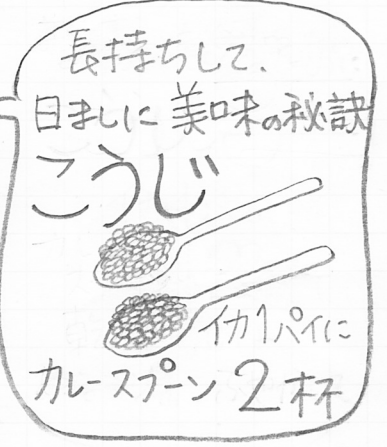 長持ちして、
日ましに美味の秘訣
こうじ
イカ1パイに
カレースプーン2杯